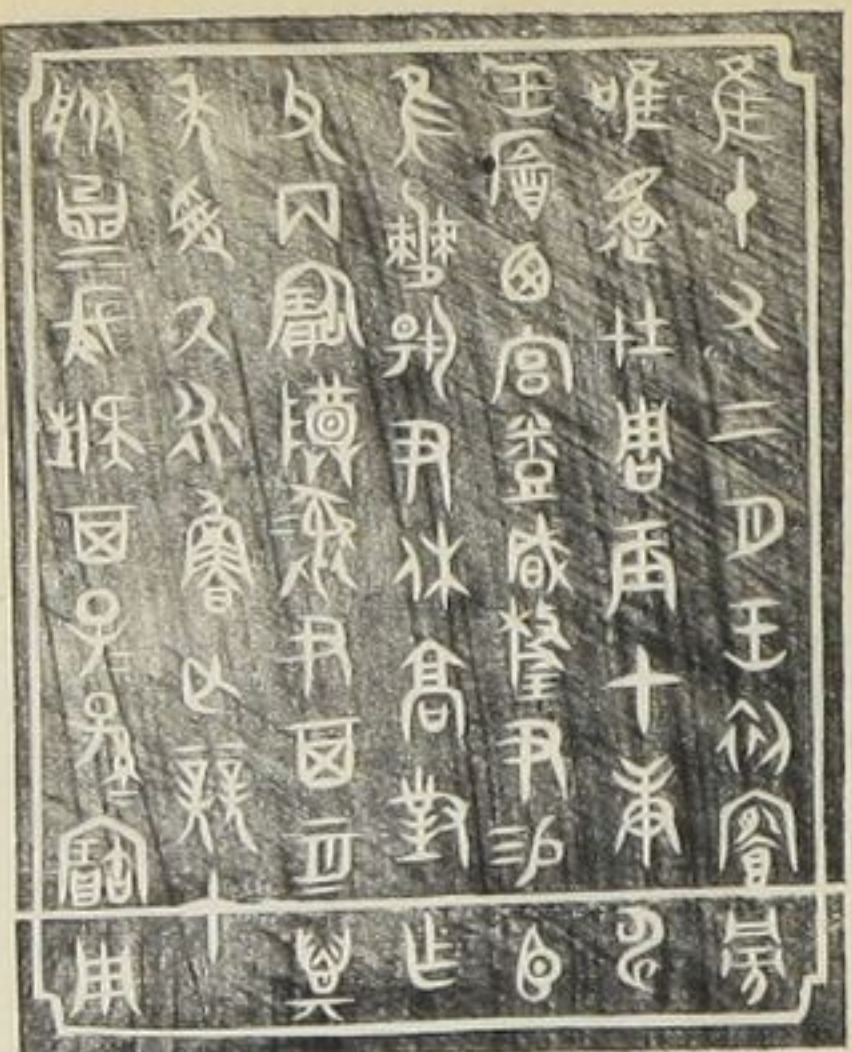 隹十又二月王初館旁
唯還在周辰才庚申
王飲西宮登咸釐尹易臣
隹小僰揚尹休高對乍
父丙寶尊彝尹其亘萬
年受氒永魯亡競才
服㠱長疑其子子孫孫寶用